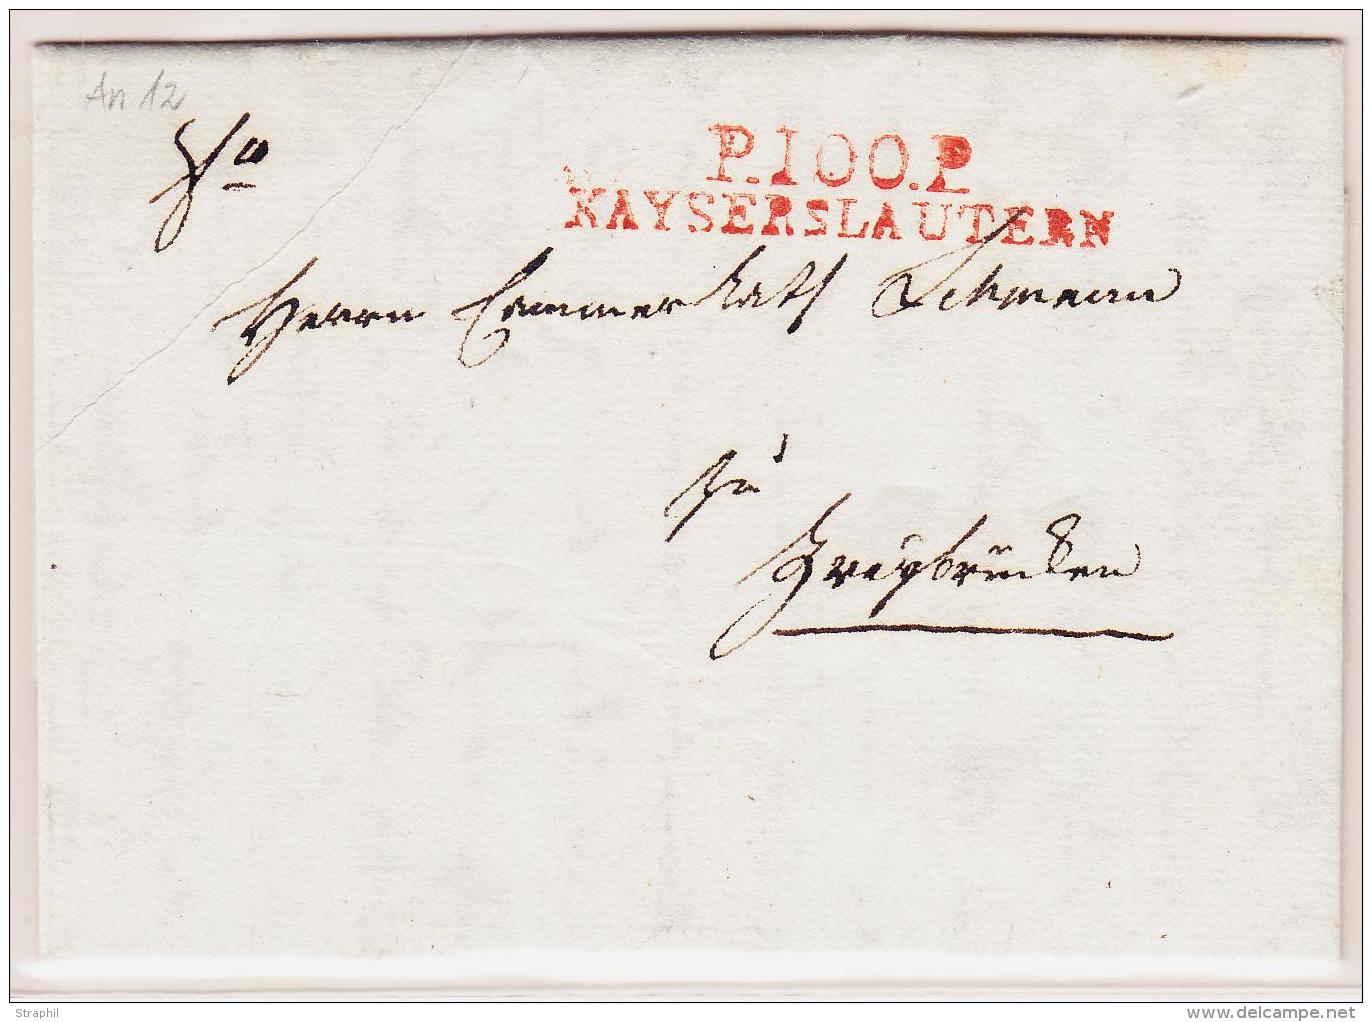 An 12
fco
P.100.P
KAYSERSLAUTERN
Herrn Cammer Rath Schmann
zu
Zweybrücken
Straphil
www.delcampe.net